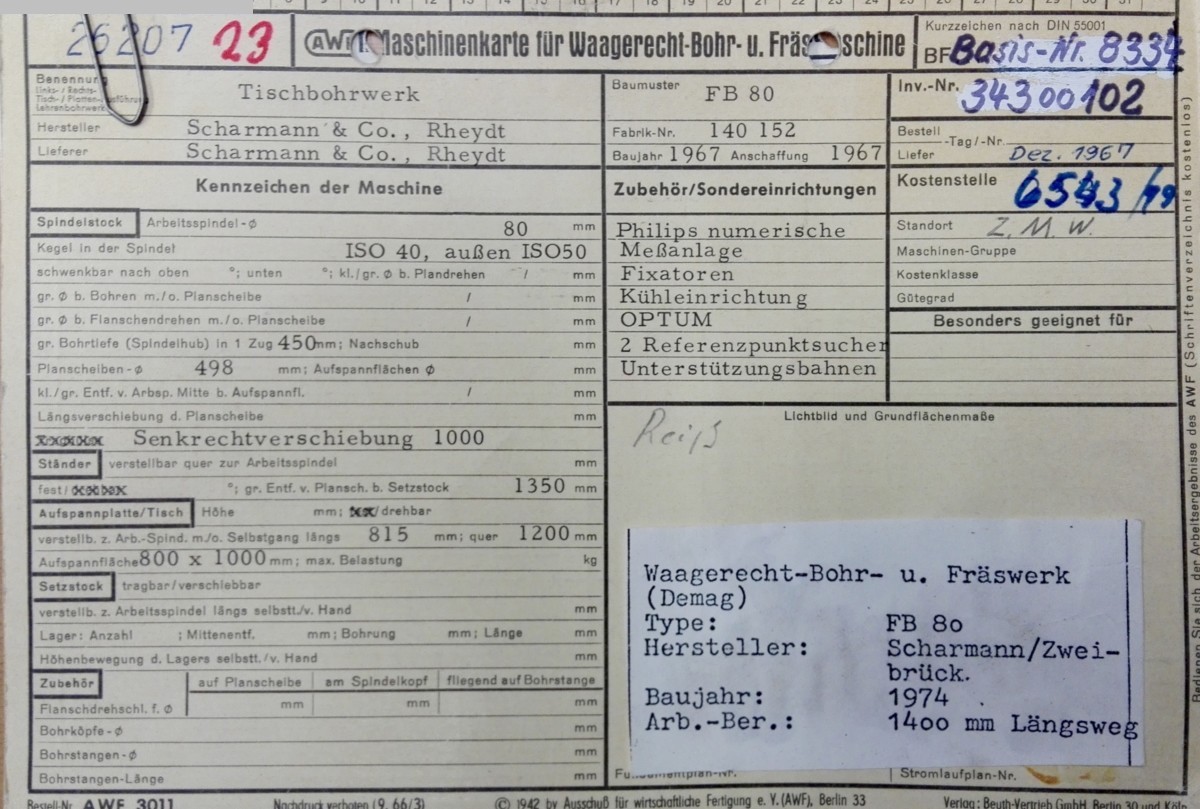 26207 23 AWF Maschinenkarte für Waagerecht-Bohr- u.
Kurzzeichen nach DIN 55001
BF Basis-Nr. 8334
Benennung
Links-/Rechts-
Tisch-/Platten-
Lehrenbohrwerk
Tischbohrwerk
Hersteller Scharmann & Co., Rheydt
Lieferer Scharmann & Co., Rheydt
Baumuster FB 80
Fabrik-Nr. 140 152
Baujahr 1967 Anschaffung 1967
Inv.-Nr. 34300102
Bestell
Liefer -Tag/-Nr. Dez. 1967
Kostenstelle 6543/
Standort Z. M. W.
Maschinen-Gruppe
Kostenklasse
Gütegrad
Besonders geeignet für
Kennzeichen der Maschine
Spindelstock Arbeitsspindel-⌀ 80 mm
Kegel in der Spindel ISO 40, außen ISO50
schwenkbar nach oben °; unten °; kl./gr. ⌀ b. Plandrehen / mm
gr. ⌀ b. Bohren m./o. Planscheibe / mm
gr. ⌀ b. Flanschendrehen m./o. Planscheibe / mm
gr. Bohrtiefe (Spindelhub) in 1 Zug 450mm; Nachschub mm
Planscheiben-⌀ 498 mm; Aufspannflächen ⌀ mm
kl./gr. Entf. v. Arbsp. Mitte b. Aufspannfl. / mm
Längsverschiebung d. Planscheibe mm
Senkrechtverschiebung 1000
Ständer verstellbar quer zur Arbeitsspindel mm
fest/ °; gr. Entf. v. Plansch. b. Setzstock 1350 mm
Aufspannplatte/Tisch Höhe mm; /drehbar
verstellb. z. Arb.-Spind. m./o. Selbstgang längs 815 mm; quer 1200 mm
Aufspannfläche 800 x 1000 mm; max. Belastung kg
Setzstock tragbar/verschiebbar
verstellb. z. Arbeitsspindel längs selbstt./v. Hand mm
Lager: Anzahl ; Mittenentf. mm; Bohrung mm; Länge mm
Höhenbewegung d. Lagers selbstt./v. Hand mm
Zubehör auf Planscheibe am Spindelkopf fliegend auf Bohrstange
Flanschdrehschl. f. ⌀ mm mm mm
Bohrköpfe-⌀ mm
Bohrstangen-⌀ mm
Bohrstangen-Länge mm
Zubehör/Sondereinrichtungen
Philips numerische
Meßanlage
Fixatoren
Kühleinrichtung
OPTUM
2 Referenzpunktsucher
Unterstützungsbahnen
Lichtbild und Grundflächenmaße
Reiß
Waagerecht-Bohr- u. Fräswerk
(Demag)
Type: FB 80
Hersteller: Scharmann/Zwei-
brück.
Baujahr: 1974
Arb.-Ber.: 1400 mm Längsweg
Stromlaufplan-Nr.
Bestell-Nr. AWF 3011 Nachdruck verboten (9. 66/3) © 1942 by Ausschuß für wirtschaftliche Fertigung e. V. (AWF), Berlin 33 Verlag: Beuth-Vertrieb GmbH, Berlin 30 und
Bedienen Sie sich der Arbeitsergebnisse des AWF (Schriftenverzeichnis kostenlos)